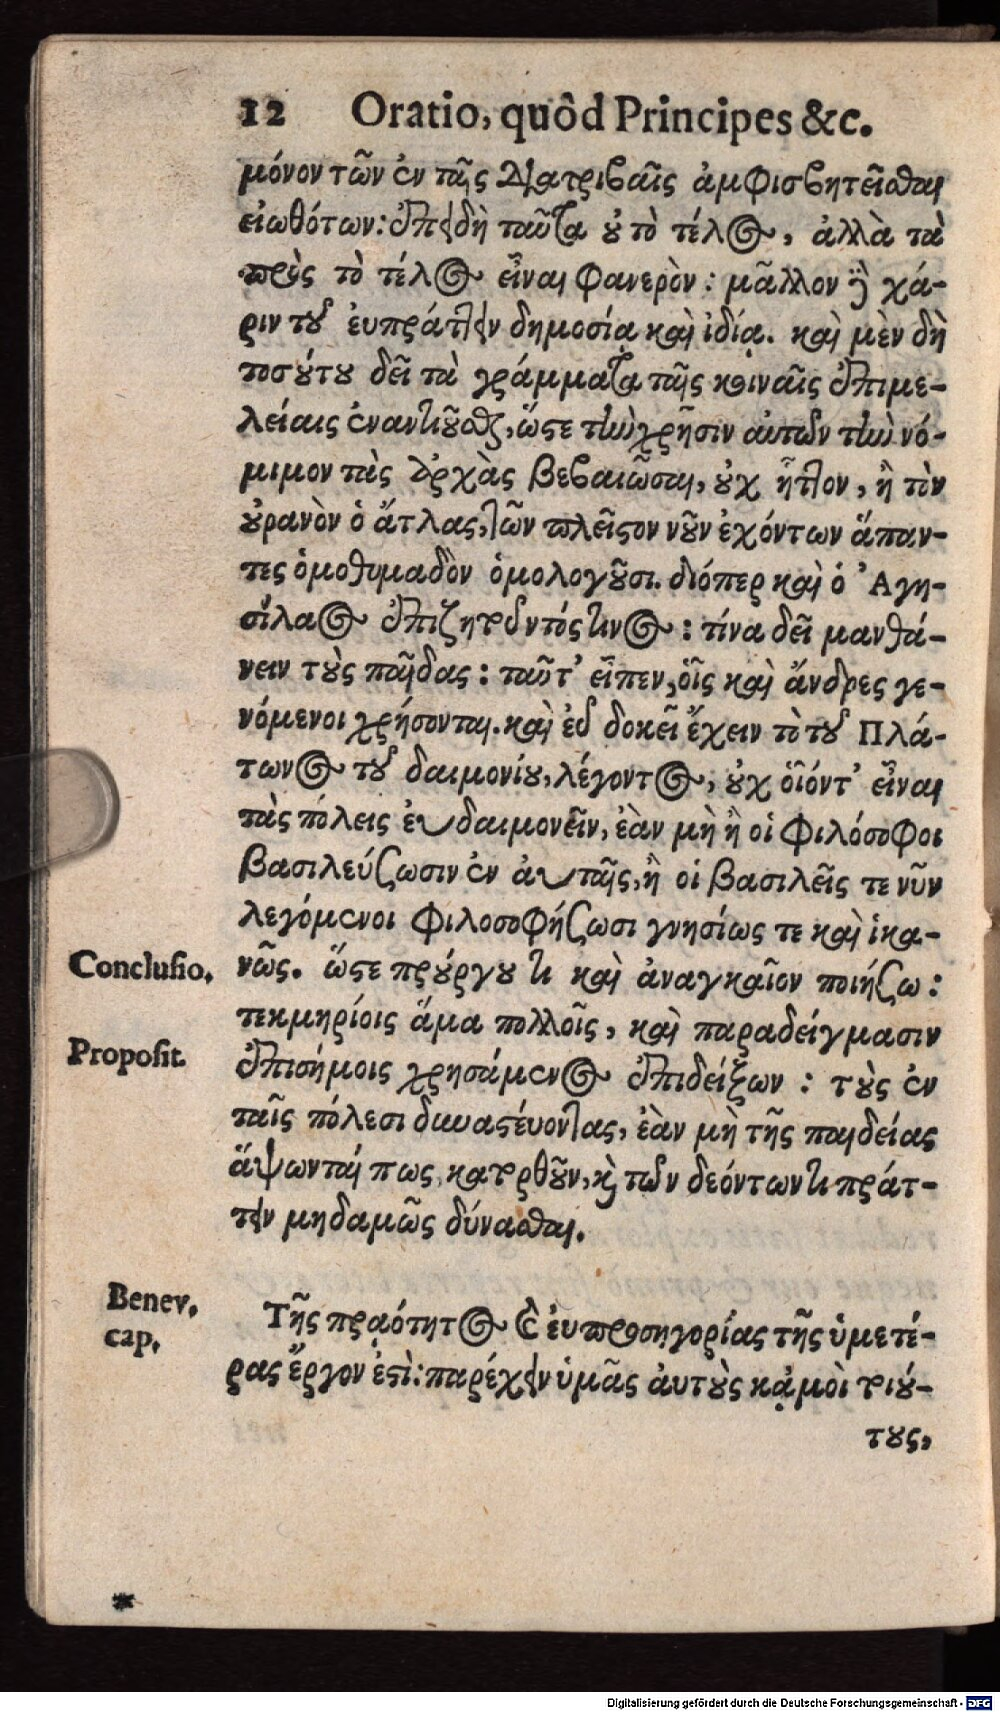 12 Oratio, quôd Principes &c.
μόνον τῶν ἐν ταῖς Διατριβαῖς ἀμφισβητεῖσθαι
εἰωθότων: ἐπειδὴ ταῦτα οὐ τὸ τέλος, ἀλλὰ τὰ
πρὸς τὸ τέλος εἶναι φανερὸν: μᾶλλον δὲ χά-
ριν τοῦ ἐυπράττειν δημοσία καὶ ἰδίᾳ. καὶ μὲν δὴ
τοσούτου δεῖ τὰ γράμματα ταῖς κοιναῖς ἐπιμε-
λείαις ἐναντιοῦσθαι, ὥστε τὴν χρῆσιν αὐτῶν τὴν νό-
μιμον τὰς ἀρχὰς βεβαιῶσαι, οὐχ ἧττον, ἢ τὸν
οὐρανὸν ὁ ἄτλας, τῶν πλεῖστον νοῦν ἐχόντων ἅπαν-
τες ὁμοθυμαδὸν ὁμολογοῦσι. διόπερ καὶ ὁ Ἀγη-
σίλαος ἐπιζητοῦντός τινος: τίνα δεῖ μανθά-
νειν τοὺς παῖδας: ταῦτ' εἶπεν, οἷς καὶ ἄνδρες γε-
νόμενοι χρήσονται. καὶ εὖ δοκεῖ ἔχειν τὸ τοῦ Πλά-
τωνος τοῦ δαιμονίου, λέγοντος, οὐχ οἷόντ' εἶναι
τὰς πόλεις ἐυδαιμονεῖν, ἐὰν μὴ ἢ οἱ φιλόσοφοι
βασιλεύσωσιν ἐν ἀυταῖς, ἢ οἱ βασιλεῖς τε νῦν
λεγόμενοι φιλοσοφήσωσι γνησίως τε καὶ ἱκα-
Conclusio. νῶς. ὥστε προύργου τι καὶ ἀναγκαῖον ποιήσω:
τεκμηρίοις ἅμα πολλοῖς, καὶ παραδείγμασιν
Proposit. ἐπισήμοις χρησάμενος ἐπιδείξων: τοὺς ἐν
ταῖς πόλεσι δυναστέυοντας, ἐὰν μὴ τῆς παιδείας
ἅψωνταί πως, κατορθοῦν, καὶ τῶν δεόντων τι πράτ-
τειν μηδαμῶς δύνασθαι.
Benev.
cap.
Τῆς πραότητος καὶ ἐυπροσηγορίας τῆς ὑμετέ-
ρας ἔργον ἐστὶ: παρέχειν ὑμᾶς ἀυτοὺς κᾀμοὶ τοιού-
τους,
Digitalisierung gefördert durch die Deutsche Forschungsgemeinschaft - DFG